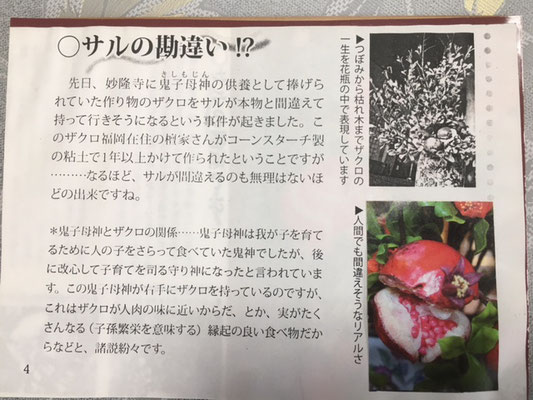 ○サルの勘違い!?
きしもじん
先日、妙隆寺に鬼子母神の供養として捧げら
れていた作り物のザクロをサルが本物と間違えて
持って行きそうになるという事件が起きました。こ
のザクロ福岡在住の檀家さんがコーンスターチ製
の粘土で1年以上かけて作られたということですが
………なるほど、サルが間違えるのも無理はないほ
どの出来ですね。
*鬼子母神とザクロの関係……鬼子母神は我が子を育て
るために人の子をさらって食べていた鬼神でしたが、後
に改心して子育てを司る守り神になったと言われていま
す。この鬼子母神が右手にザクロを持っているのですが、
これはザクロが人肉の味に近いからだ、とか、実がたく
さんなる（子孫繁栄を意味する）縁起の良い食べ物だか
らなどと、諸説紛々です。
▶つぼみから枯れ木までザクロの
一生を花瓶の中で表現しています
▶人間でも間違えそうなリアルさ
4